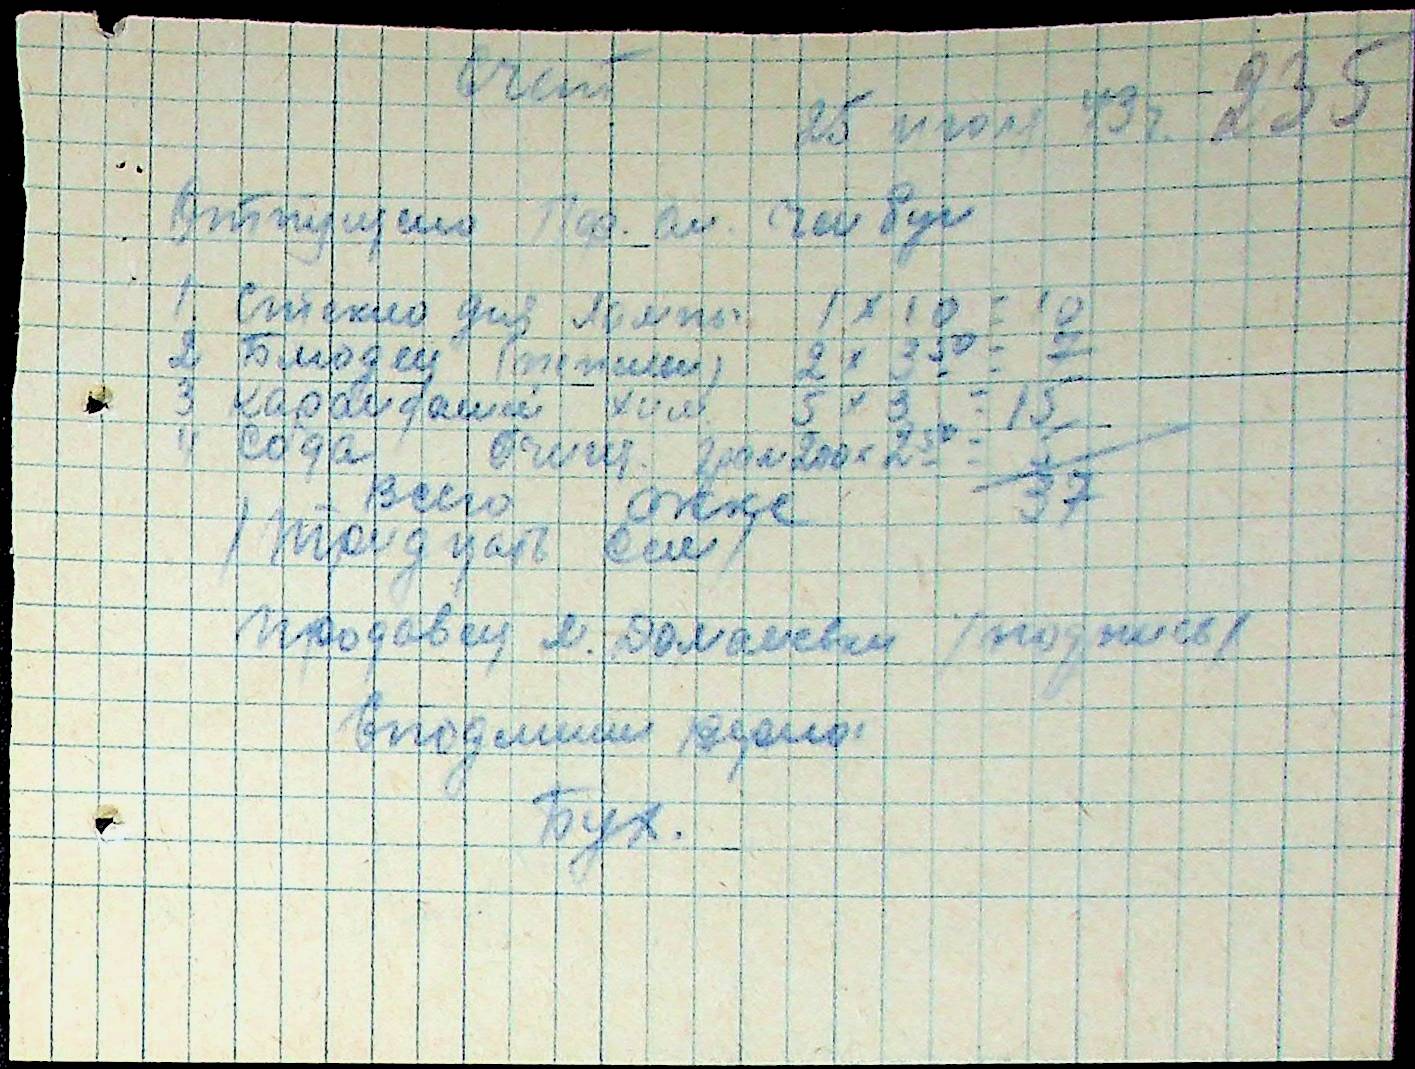 Счет
25 июля 43 г. 235
Отпущено
1 Стекло для Лампы 1 х 10 = 10
2 Блюдец 2 х 3 50 = 7
3 карандашей хим. 5 х 3 = 15
4 Сода очищ. грам 200 х 2 50 = 5
Всего 37
/Тридцать сем/
Продавец М. /подпись/
С подлиным верно:
Бух.